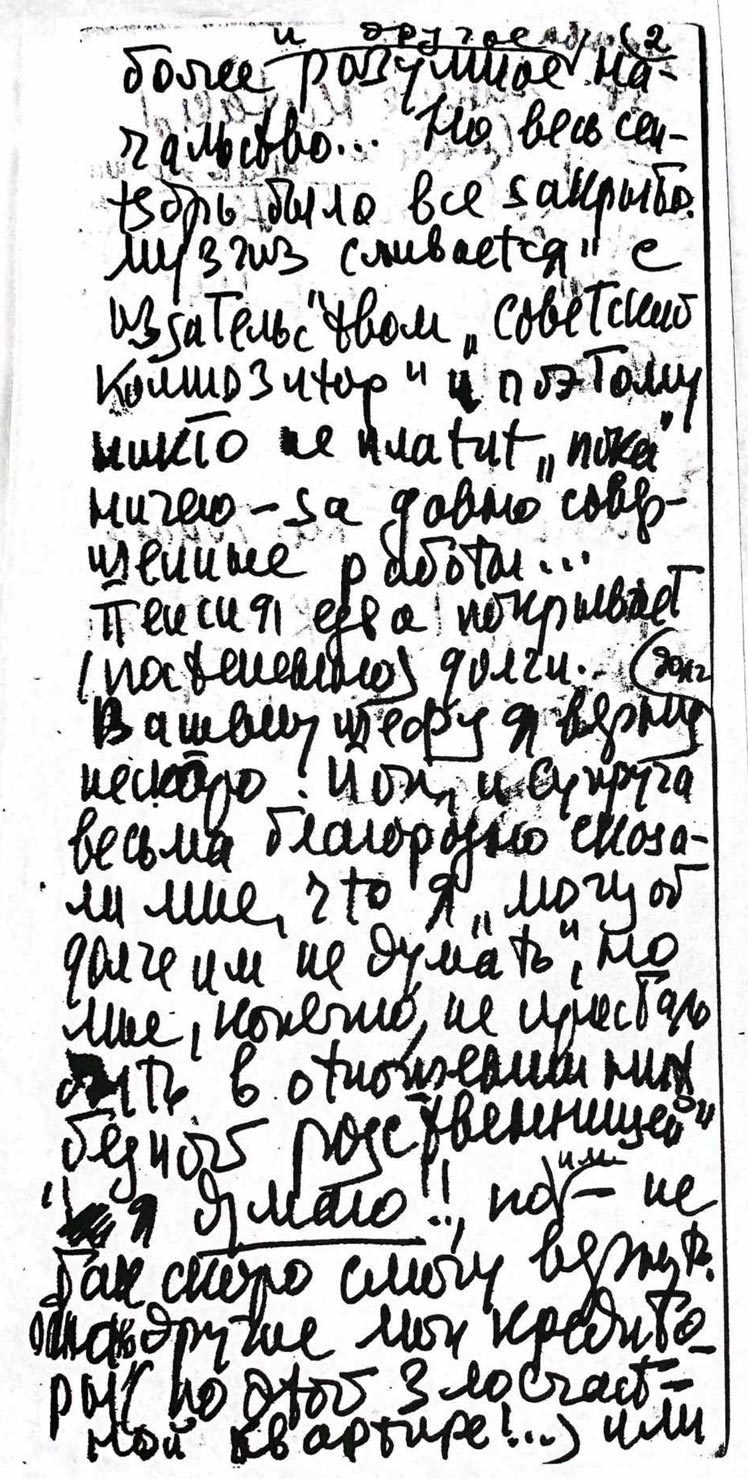 и другое, (2
более разумное на-
чальство... Но весь сен-
тябрь было все закрыто.
Музгиз сливается" с
издательс"твом „советский
композитор" и поэтому
никто не платит „пока"
ничего – за давно совер-
шенные работы...
Пенсия едва покрывает
(постепенно) долги... (долг
Вашему шефу я верну
нескоро! И он, и супруга
весьма благородно сказа-
ли мне, что я „могу об
долге им не думать", но
мне, конечно, не пристало
быть в отношении них
бедной родственницей"
я думаю!!, но им – не
так скоро смогу вернуть.
другие мои кредито-
ры (по этой злосчаст-
ной квартире!...) или